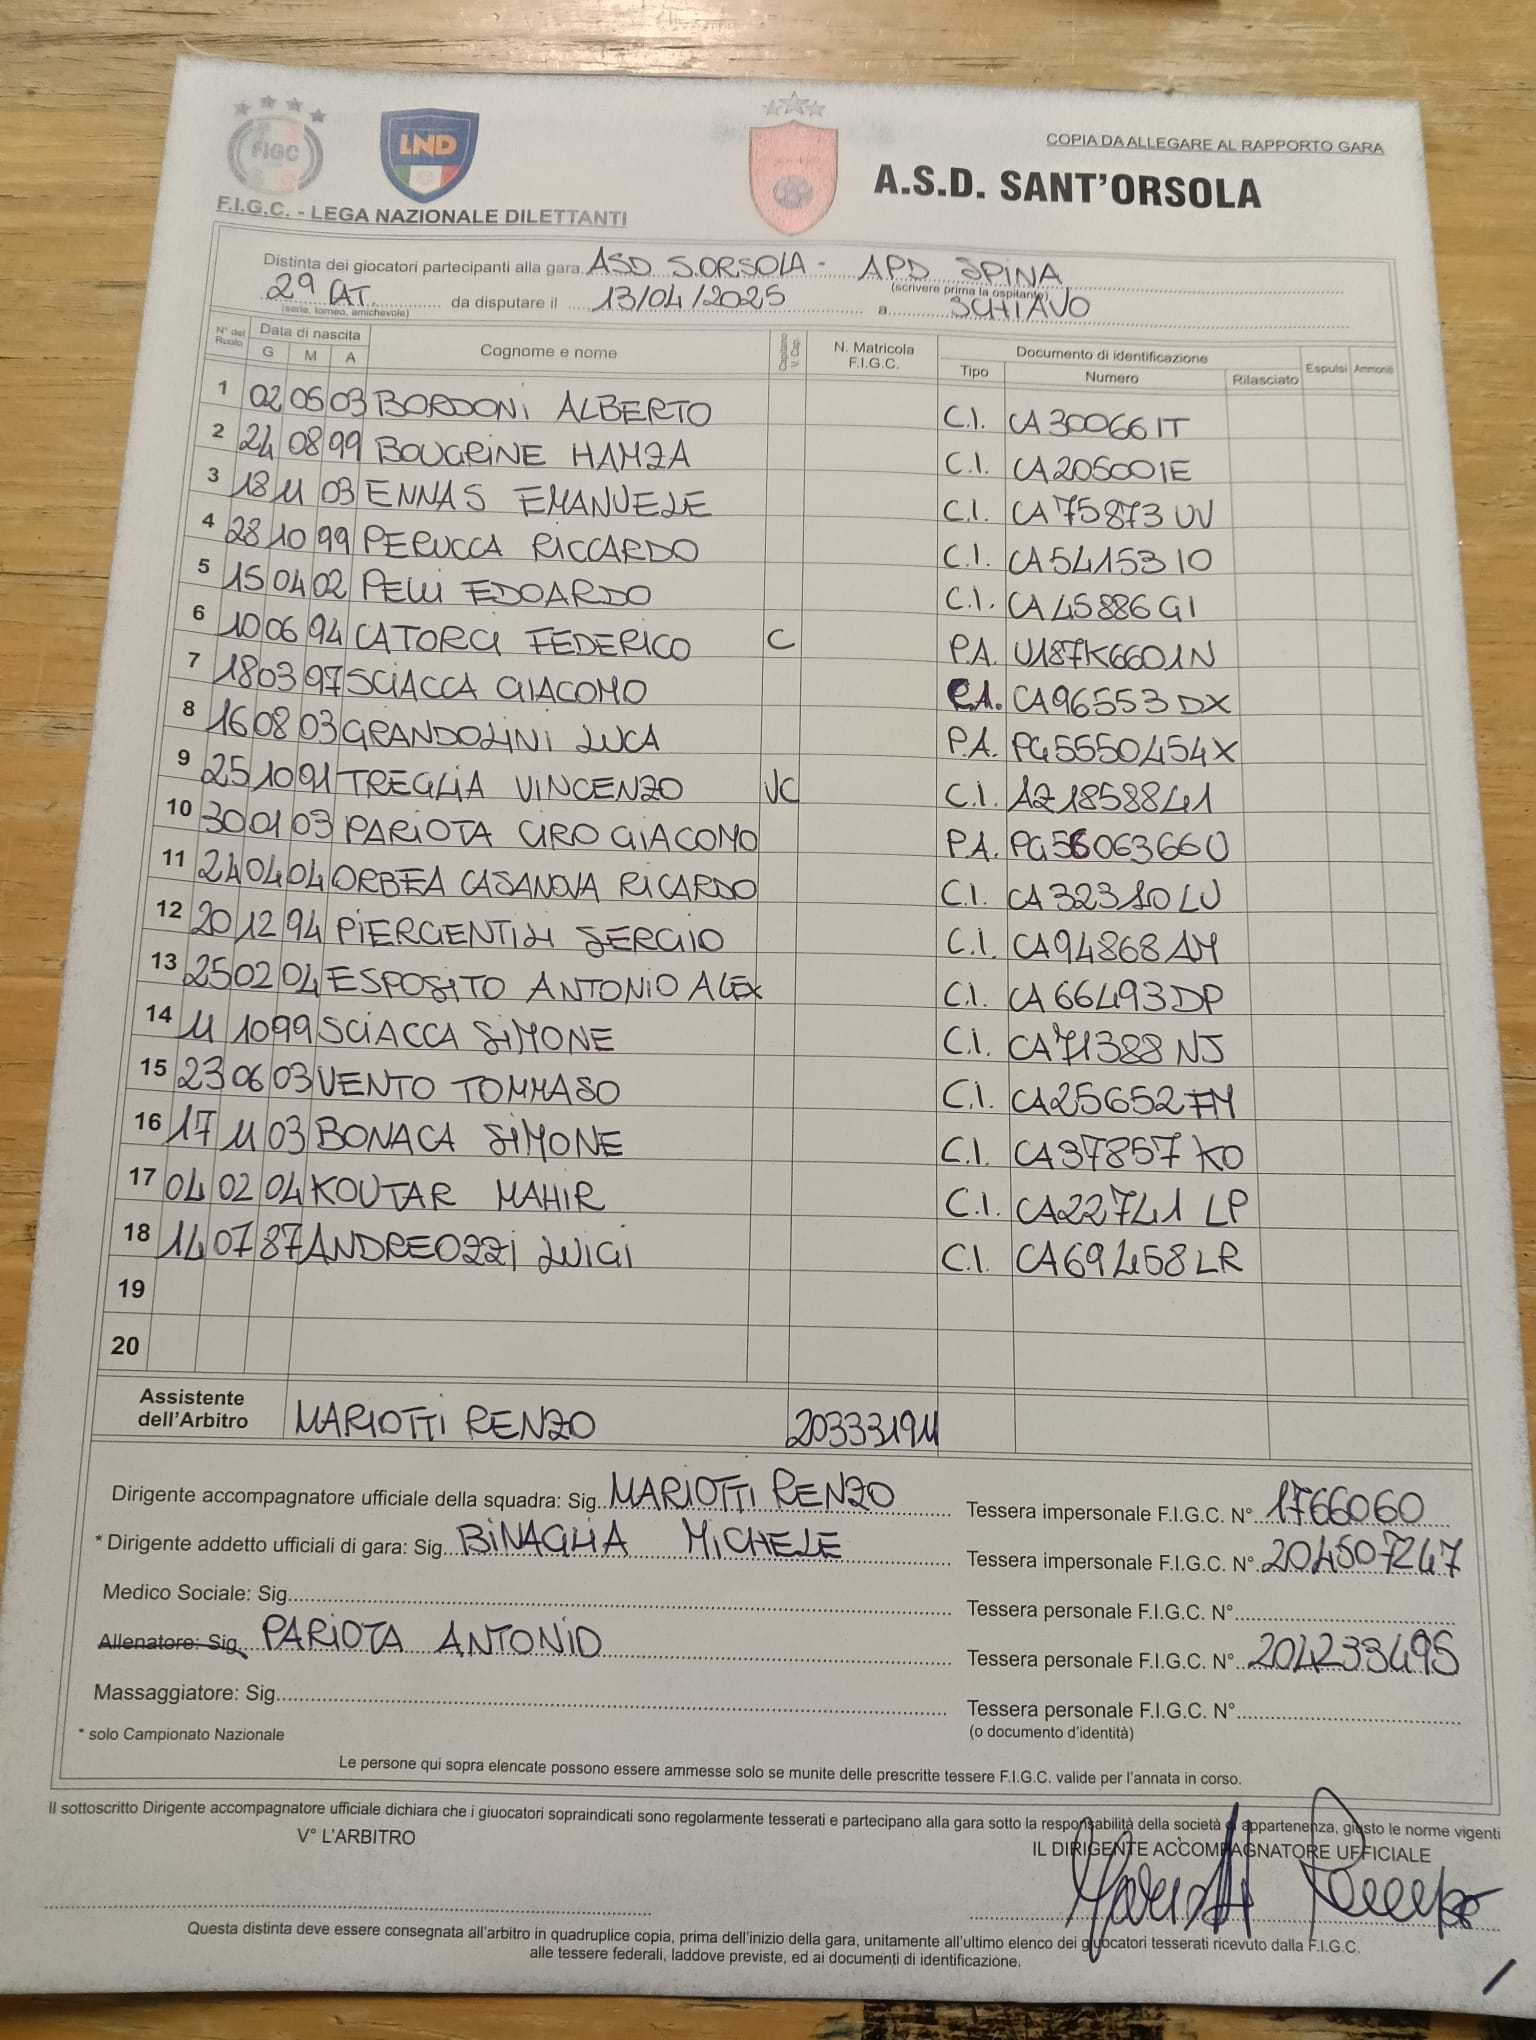 COPIA DA ALLEGARE AL RAPPORTO GARA
FIGC LND
A.S.D. SANT'ORSOLA
F.I.G.C. - LEGA NAZIONALE DILETTANTI
Distinta dei giocatori partecipanti alla gara ASD S.ORSOLA - APD SPINA
(scrivere prima la ospitante)
2ª CAT. da disputare il 13/04/2025 a SCHIAVO
(serie, torneo, amichevole)
N° del Ruolo Data di nascita G M A Cognome e nome Capitano V. Cap. N. Matricola F.I.G.C. Documento di identificazione Tipo Numero Rilasciato Espulsi Ammoniti
1 02 05 03 BORDONI ALBERTO C.I. CA30066IT
2 24 08 99 BOUGRINE HAMZA C.I. CA20500IE
3 18 11 03 ENNAS EMANUELE C.I. CA75873UV
4 28 10 99 PERUCCA RICCARDO C.I. CA54153IO
5 15 04 02 PELLI EDOARDO C.I. CA45886GI
6 10 06 94 CATORCI FEDERICO C P.A. U187K6601N
7 18 03 97 SCIACCA GIACOMO C.I. CA96553DX
8 16 08 03 GRANDOLINI LUCA P.A. PG5550454X
9 25 10 91 TREGLIA VINCENZO VC C.I. AZ1858841
10 30 01 03 PARIOTA CIRO GIACOMO P.A. PG5606366U
11 24 04 04 ORBEA CASANOVA RICARDO C.I. CA32310LU
12 20 12 94 PIERGENTILI SERGIO C.I. CA94868AM
13 25 02 04 ESPOSITO ANTONIO ALEX C.I. CA66493DP
14 11 10 99 SCIACCA SIMONE C.I. CA71388NJ
15 23 06 03 VENTO TOMMASO C.I. CA25652FM
16 17 11 03 BONACA SIMONE C.I. CA37857KO
17 04 02 04 KOUTAR MAHIR C.I. CA22741LP
18 14 07 87 ANDREOZZI LUIGI C.I. CA69458LR
19
20
Assistente dell'Arbitro MARIOTTI RENZO 203331911
Dirigente accompagnatore ufficiale della squadra: Sig. MARIOTTI RENZO Tessera impersonale F.I.G.C. N° 1766060
* Dirigente addetto ufficiali di gara: Sig. BINAGLIA MICHELE Tessera impersonale F.I.G.C. N° 204507247
Medico Sociale: Sig. Tessera personale F.I.G.C. N°
Allenatore: Sig. PARIOTA ANTONIO Tessera personale F.I.G.C. N° 204233495
Massaggiatore: Sig. Tessera personale F.I.G.C. N°
* solo Campionato Nazionale (o documento d'identità)
Le persone qui sopra elencate possono essere ammesse solo se munite delle prescritte tessere F.I.G.C. valide per l'annata in corso.
Il sottoscritto Dirigente accompagnatore ufficiale dichiara che i giuocatori sopraindicati sono regolarmente tesserati e partecipano alla gara sotto la responsabilità della società di appartenenza, giusto le norme vigenti
V° L'ARBITRO IL DIRIGENTE ACCOMPAGNATORE UFFICIALE
Questa distinta deve essere consegnata all'arbitro in quadruplice copia, prima dell'inizio della gara, unitamente all'ultimo elenco dei giuocatori tesserati ricevuto dalla F.I.G.C.
alle tessere federali, laddove previste, ed ai documenti di identificazione.